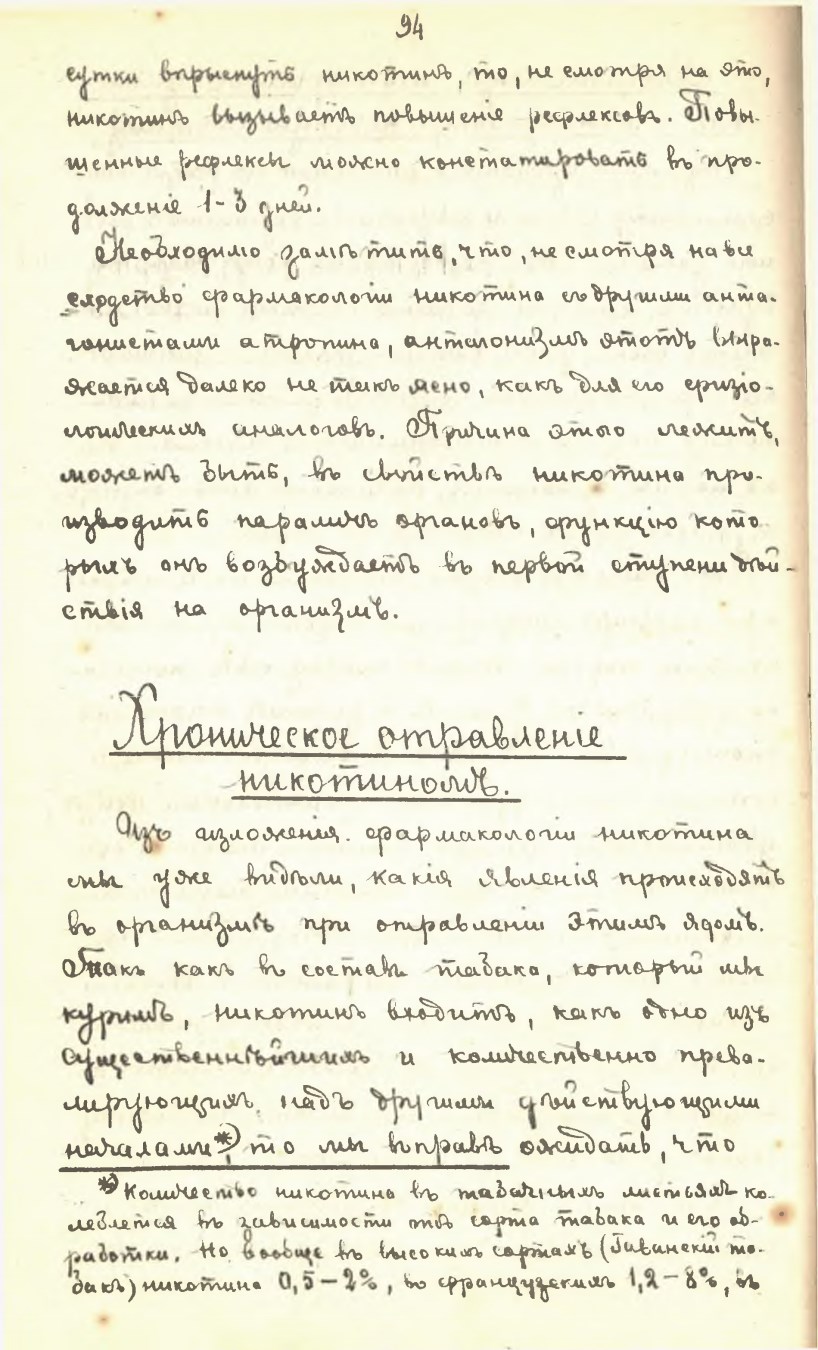 94
сутки впрыснуть никотинъ, то, не смотря на это,
никотинъ вызываетъ повышеніе рефлексовъ. Повы-
шенные рефлексы можно констатировать въ про-
долженіе 1-3 дней.
Необходимо замѣтить, что, не смотря на все
сходство фармакологіи никотина съ другими анта-
гонистами атропина, антагонизмъ этотъ выра-
жается далеко не такъ ясно, какъ для его физіо-
логическихъ аналоговъ. Причина этого лежитъ,
можетъ быть, въ свойствѣ никотина про-
изводить параличъ органовъ, функцію кото
рыхъ онъ возбуждаетъ въ первой ступени дѣй-
ствія на организмъ.
Хроническое отравленіе
никотиномъ.
Изъ изложенія фармакологіи никотина
мы уже видѣли, какія явленія происходятъ
въ организмѣ при отравленіи этимъ ядомъ.
Такъ какъ въ составъ табака, который мы
куримъ, никотинъ входитъ, какъ одно изъ
существеннѣйшихъ и количественно прева-
лирующихъ надъ другими дѣйствующими
началами*), то мы вправѣ ожидать, что
*) Количество никотина въ табачныхъ листьяхъ ко-
леблется въ зависимости отъ сорта табака и его об-
работки. Но вообще въ высокихъ сортахъ (Гаванскій та-
бакъ) никотина 0,5-2%, во французскихъ 1,2-8%, въ